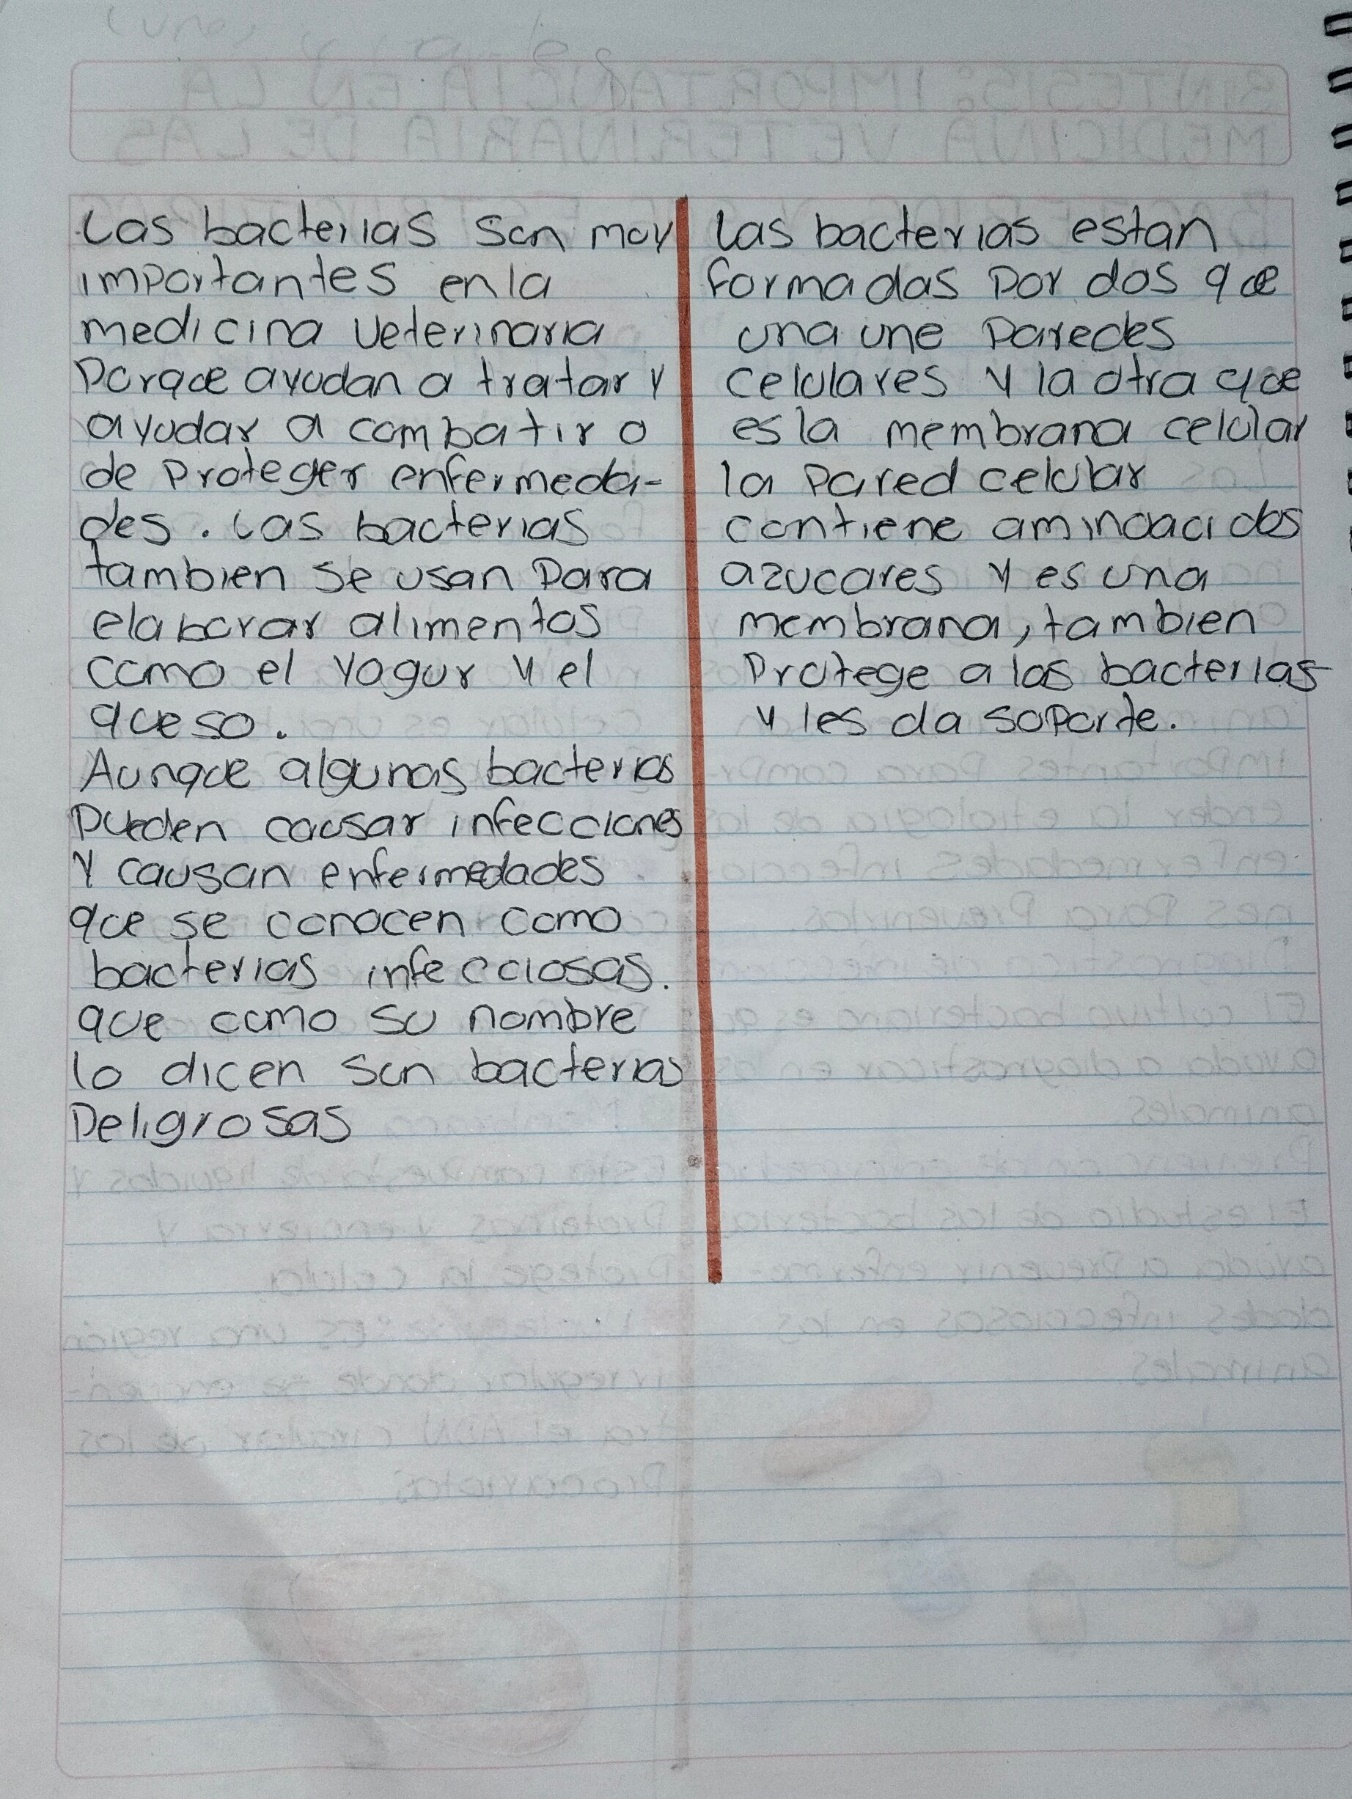 Las bacterias son muy
importantes en la
medicina veterinaria
Porque ayudan a tratar y
ayudar a combatir o
de Proteger enfermeda-
des. Las bacterias
tambien se usan Para
elaborar alimentos
como el yogur y el
queso.
Aunque algunas bacterias
Pueden causar infecciones
Y causan enfermedades
que se conocen como
bacterias infecciosas.
que como su nombre
lo dicen son bacterias
Peligrosas
las bacterias estan
formadas Por dos que
una une Paredes
celulares y la otra que
es la membrana celular
la Pared celular
contiene aminoacidos
azucares y es una
membrana, tambien
Protege a las bacterias
y les da soporte.